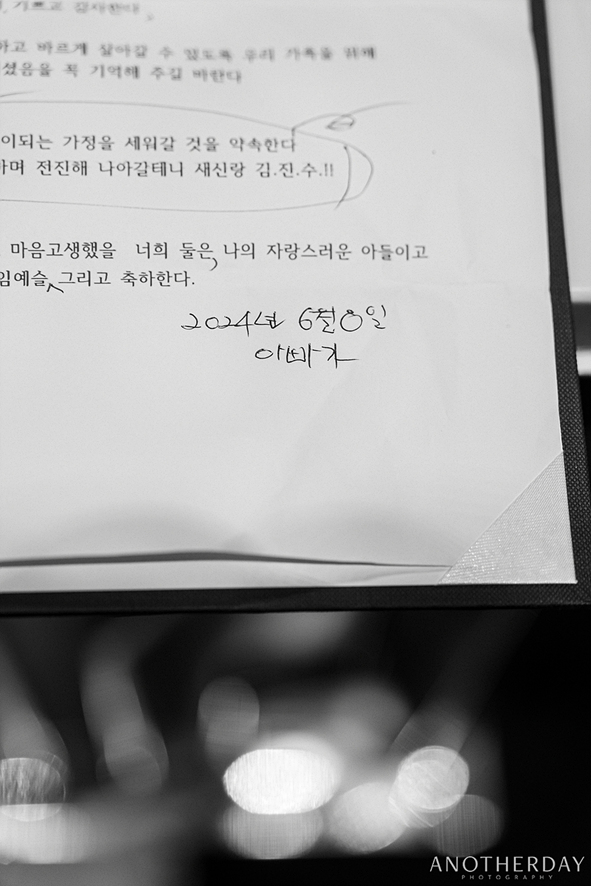 기르고 감사한다.
하고 바르게 살아갈 수 있도록 우리 가족을 위해
셨음을 꼭 기억해 주길 바란다
이되는 가정을 세워갈 것을 약속한다
하며 전진해 나아갈테니 새신랑 김.진.수.!!
마음고생했을 너희 둘은, 나의 자랑스러운 아들이고
임예슬, 그리고 축하한다.
2024년 6월 8일
아빠가
ANOTHERDAY
PHOTOGRAPHY